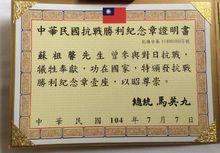 中華民國抗戰勝利紀念章證明書
蘇祖馨先生曾參與對日抗戰，
犧牲奉獻，功在國家，特頒發抗戰
勝利紀念章壹座，以昭尊崇。
總統 馬英九
中華民國 104 年 7 月 7 日